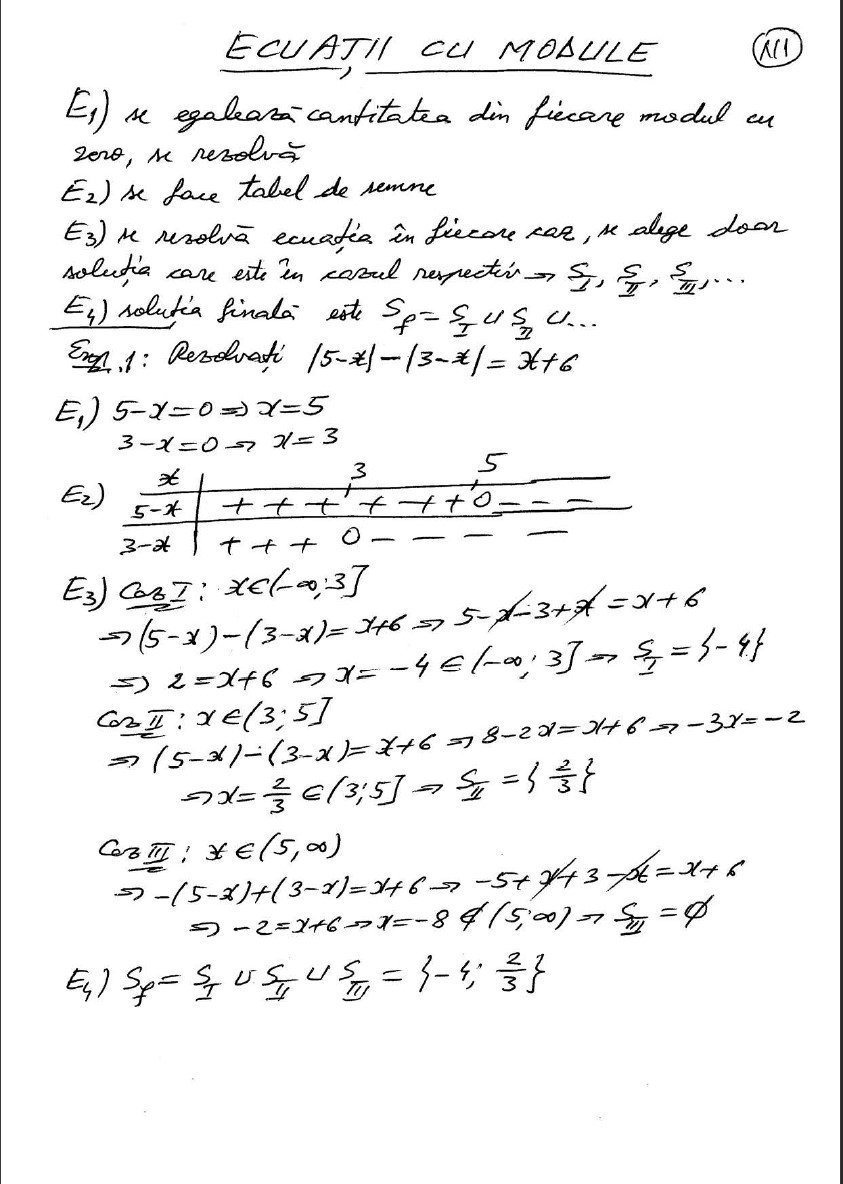 ECUAȚII CU MODULE
E₁) se egalează cantitatea din fiecare modul cu
zero, se rezolvă
E₂) se face tabel de semne
E₃) se rezolvă ecuația în fiecare caz, se alege doar
soluția care este în cazul respectiv ⇒ S_I, S_II, S_III, ...
E₄) soluția finală este S_f = S_I ∪ S_II ∪ ...
1: Rezolvați |5-x| - |3-x| = x+6
E₁) 5-x=0 ⇒ x=5
3-x=0 ⇒ x=3
E₂) x | 3 5
5-x | + + + + + + 0 - - -
3-x | + + + 0 - - - -
E₃) Caz I: x∈(-∞;3]
⇒ (5-x)-(3-x)=x+6 ⇒ 5-x-3+x=x+6
⇒ 2=x+6 ⇒ x=-4∈(-∞;3] ⇒ S_I={-4}
Caz II: x∈(3;5]
⇒ (5-x)+(3-x)=x+6 ⇒ 8-2x=x+6 ⇒ -3x=-2
⇒ x=2/3 ∈(3;5] ⇒ S_II={2/3}
Caz III: x∈(5,∞)
⇒ -(5-x)+(3-x)=x+6 ⇒ -5+x+3-x=x+6
⇒ -2=x+6 ⇒ x=-8∉(5;∞) ⇒ S_III=∅
E₄) S_f = S_I ∪ S_II ∪ S_III = {-4; 2/3}